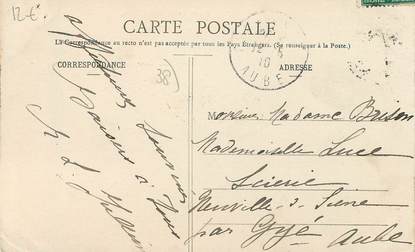 12 €.
CARTE POSTALE
La Correspondance au recto n'est pas acceptée par tous les Pays Étrangers. (Se renseigner à la Poste.)
CORRESPONDANCE
ADRESSE
38)
10
AUBE
Affectueux
Baisers à tous
Monsieur, Madame Brison
Mademoiselle Luce
Scierie
Neuville s- Seine
par Gyé
Aube